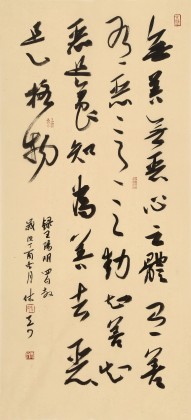 無善无惡心之體有善
有惡意之動知善知
惡是良知為善去惡
是格物
錄王陽明四句教
歲次丁酉月